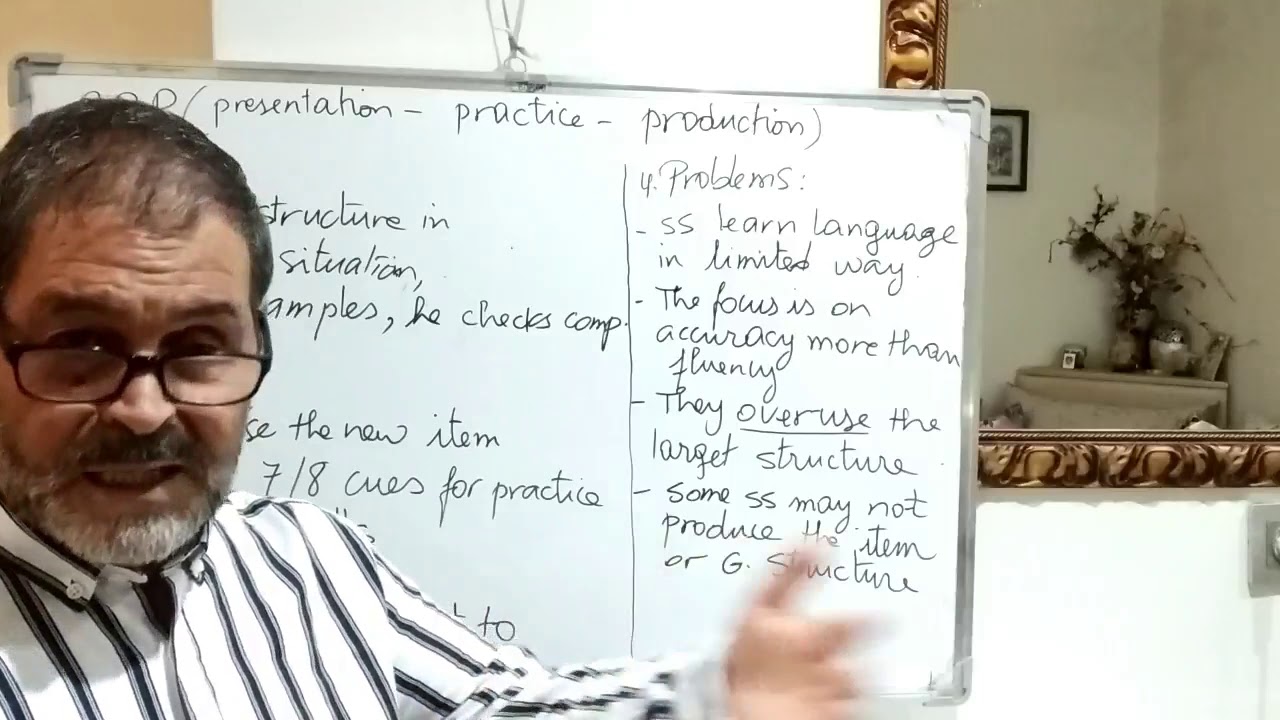 PPP (presentation - practice - production)
structure in
situation,
amples, he checks comp.
se the new item
7/8 cues for practice
to
4. Problems:
- ss learn language
in limited way.
- The focus is on
accuracy more than
fluency
- They overuse the
target structure
- Some ss may not
produce the item
or G. Structure